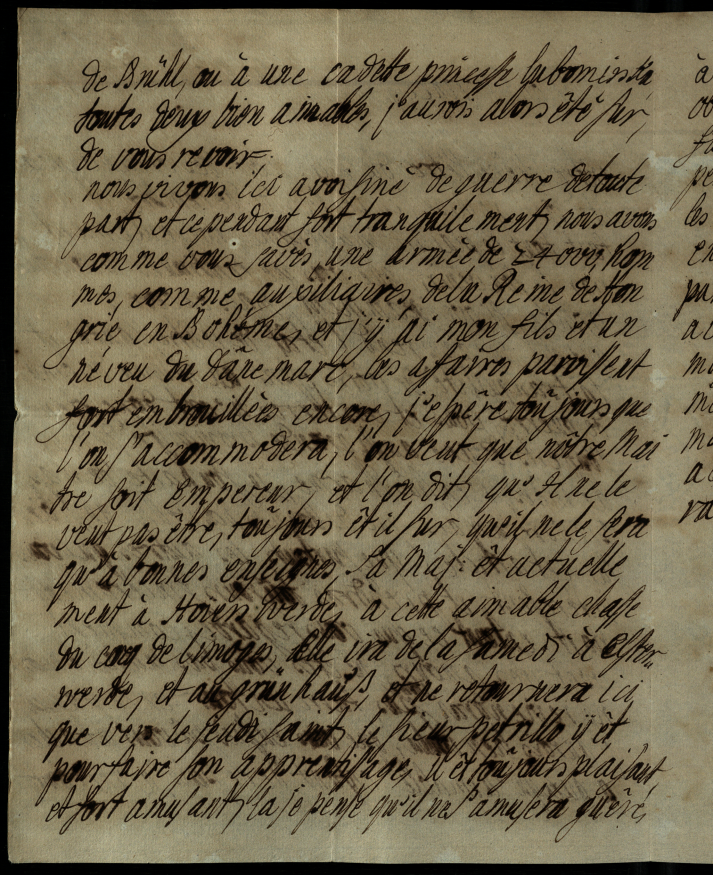 de Brühl, ou à une cadette princesse Lubomirska
toutes deux bien aimables, j'aurois alors êté sur,
de vous revoir.
nous vivons ici avoisiné de guerre de toute
part, et cependant fort tranquilement, nous avons
comme vous savés, une armée de 24000 hom
mes, comme auxiliaires de la Reine de Hon
grie en Bohême, et j'y ai mon fils et un
néveu du dânemarc, les affaires paroissent
fort embrouillées encore, j'espêre toûjours que
l'on s'accommodera, l'on veut que nôtre Mai
tre soit Empereur, et l'on dit, qu'Il ne le
veut pas être, toûjours êt il sur, qu'il ne le sera
qu'à bonnes enseignes, Sa Maj: êt actuelle
ment à Hoierswerde, à cette aimable chasse
du coq de limoges, elle ira de la samedi à Elster-
werde, et au grünhauß, et ne retournera ici
que vers le jeudi saint, le sieur petrillo ÿ êt
pour faire son apprentissage, il êt toûjours plaisant
et fort amusant, la je pense qu'il ne s'amusera guêre,
à
les
en
a
ra